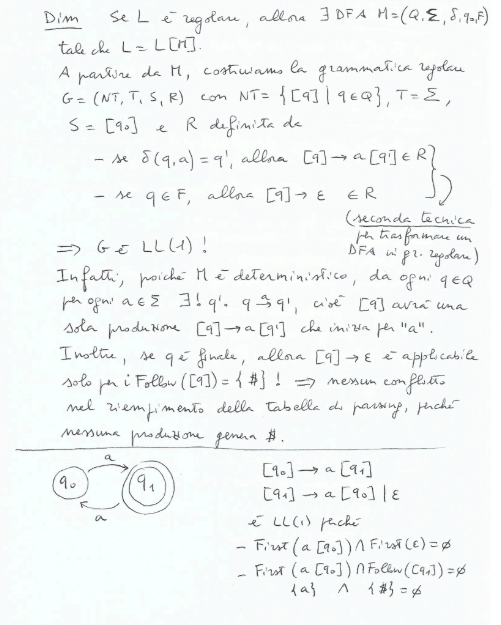 Dim Se L è regolare, allora ∃ DFA M=(Q,Σ,δ,q₀,F)
tale che L = L[M].
A partire da M, costruiamo la grammatica regolare
G = (NT, T, S, R) con NT = {[q] | q∈Q}, T = Σ,
S = [q₀] e R definita da
- se δ(q,a) = q', allora [q] → a[q'] ∈ R
- se q ∈ F, allora [q] → ε ∈ R
(seconda tecnica
per trasformare un
DFA in gr. regolare)
⟹ G è LL(1) !
Infatti, poiché M è deterministico, da ogni q∈Q
per ogni a∈Σ ∃! q'. q →ᵃ q', cioè [q] avrà una
sola produzione [q] → a[q'] che inizia per "a".
Inoltre, se q è finale, allora [q] → ε è applicabile
solo per i Follow([q]) = {#} ! ⟹ nessun conflitto
nel riempimento della tabella di parsing, perché
nessuna produzione genera #.
a
q₀ q₁
a
[q₀] → a [q₁]
[q₁] → a [q₀] | ε
è LL(1) perché
- First(a [q₀]) ∩ First(ε) = ∅
- First(a [q₀]) ∩ Follow([q₁]) = ∅
{a} ∧ {#} = ∅